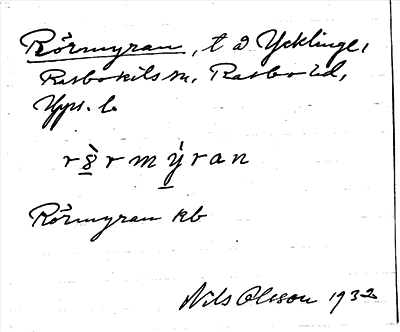 Rörmyran, t d Ycklinge,
Rasbokils sn, Rasbo hd,
Upps. l.
rö̀rmỳran
Rörmyran kb
Nils Olsson 1932